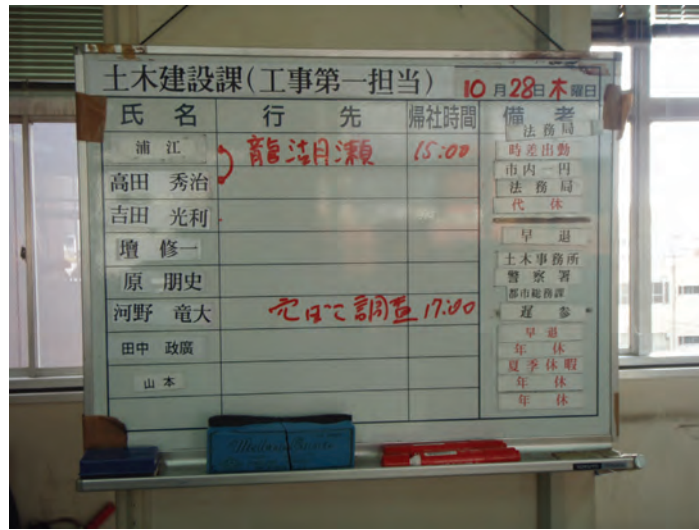 土木建設課(工事第一担当) 10月28日木曜日
氏名 行先 帰社時間 備考
浦江 龍湖月瀬 15:00
高田 秀治
吉田 光利
壇 修一
原 朋史
河野 竜大 調査 17:00
田中 政廣
山本
法務局
時差出勤
市内一円
法務局
代休
早退
土木事務所
警察署
都市総務課
遅参
早退
年休
夏季休暇
年休
年休